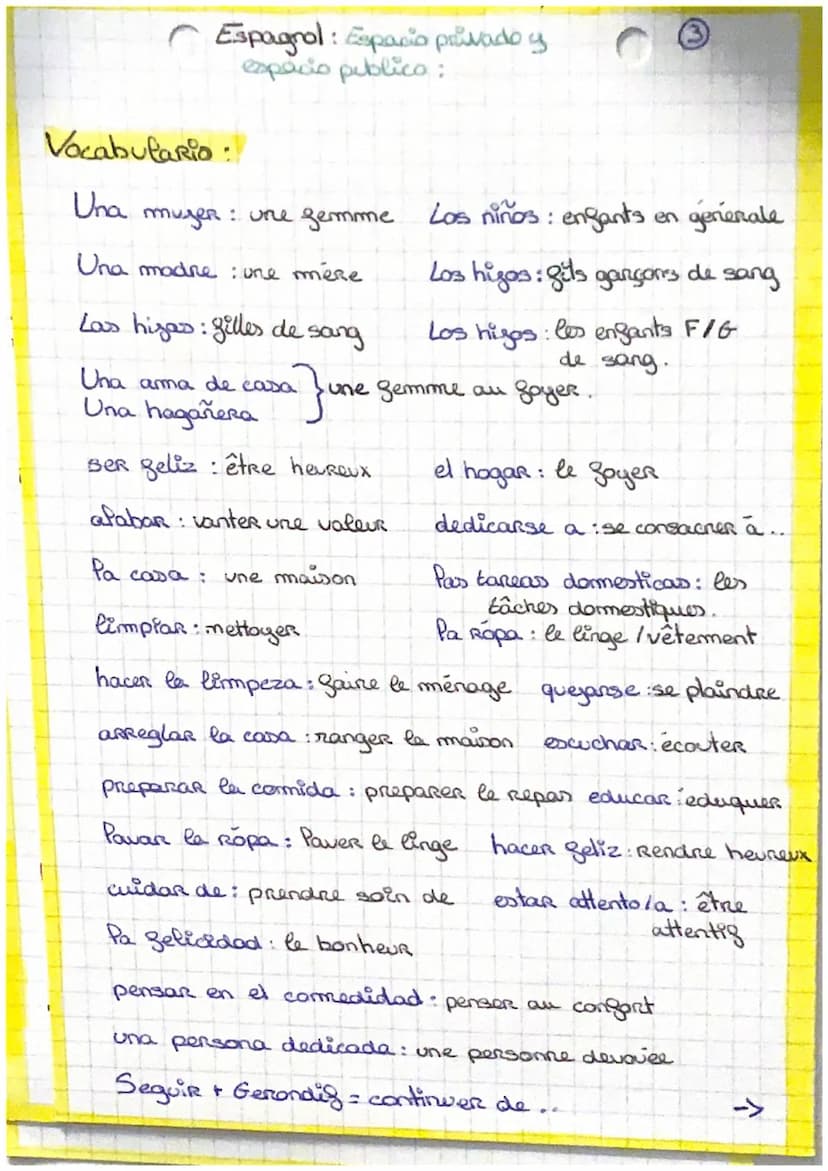 Espagnol : Espacio privado y
espacio publico :
3
Vocabulario :
Una muyer : une femme Los niños : enfants en génerale
Una madre : une mère Los hijos : fils garçons de sang
Las hijas : filles de sang Los hijos : les enfants F/G
de sang.
Una ama de casa } une femme au foyer.
Una hagañera
ser feliz : être heureux el hogar : le foyer
alabar : vanter une valeur dedicarse a : se consacrer à ..
la casa : une maison las tareas domesticas : les
tâches domestiques.
limpiar : mettoyer la rópa : le linge / vêtement
hacer la limpeza : faire le ménage quejarse : se plaindre
arreglar la casa : ranger la maison escuchar : écouter
preparar la comida : preparer le repas educar : eduquer
lavar la rópa : laver le linge hacer feliz : Rendre heureux
cuidar de : prendre soin de estar attento/a : être
attentif
la felicidad : le bonheur
pensar en el comedidad : penser au confort
una persona dedicada : une personne devouée
Seguir + Gerondif = continuer de ..
->